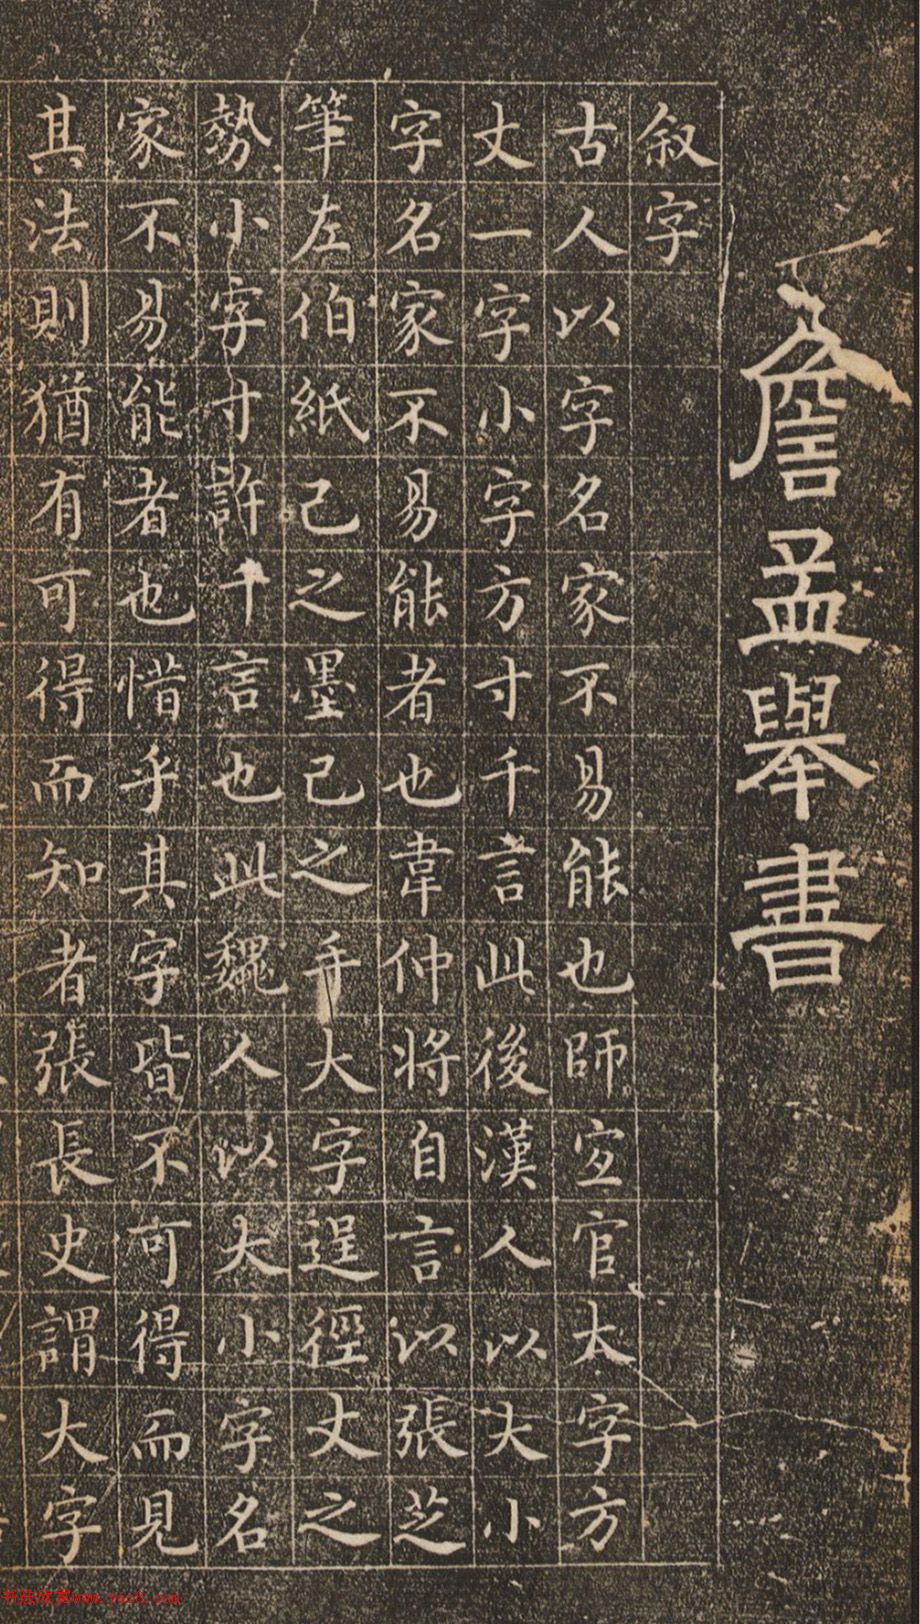 詹孟舉書
叙字
古人以字名家不易能也師宜官大字方
丈一字小字方寸千言此後漢人以大小
字名家不易能者也韋仲将自言以張芝
筆左伯紙己之墨己之手大字逞徑丈之
勢小字寸許千言也此魏人以大小字名
家不易能者也惜乎其字皆不可得而見
其法則猶有可得而知者張長史謂大字
书法欣赏www.yac8.com